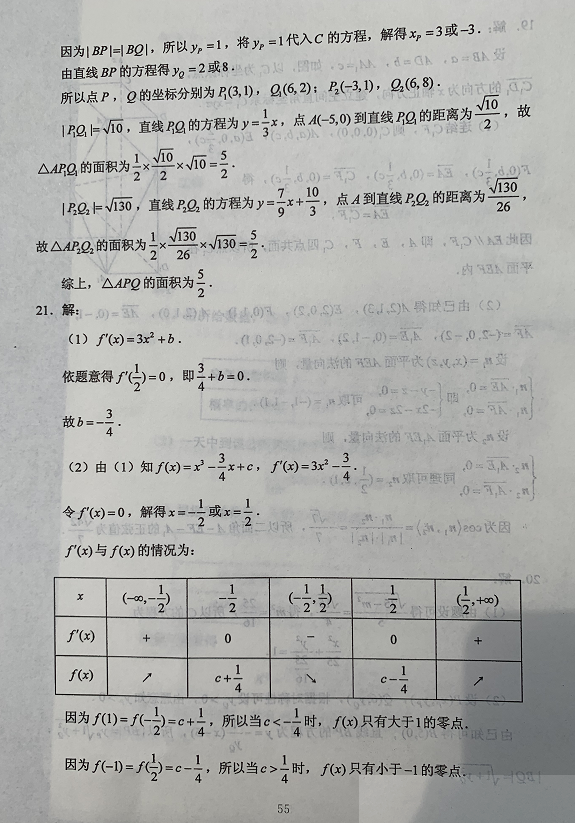 因为|BP|=|BQ|，所以 y_P=1，将 y_P=1代入C 的方程，解得 x_P=3或-3．
由直线 BP 的方程得 y_Q=2或8．
所以点 P，Q 的坐标分别为 P₁(3,1)，Q₁(6,2)；P₂(-3,1)，Q₂(6,8)．
|P₁Q₁|=√10，直线 P₁Q₁ 的方程为 y=1/3 x，点 A(-5,0) 到直线 P₁Q₁ 的距离为 √10/2，故
△AP₁Q₁ 的面积为 1/2×√10/2×√10=5/2．
|P₂Q₂|=√130，直线 P₂Q₂ 的方程为 y=7/9 x+10/3，点 A 到直线 P₂Q₂ 的距离为 √130/26，
故△AP₂Q₂ 的面积为 1/2×√130/26×√130=5/2．
综上，△APQ 的面积为 5/2．
21．解：
（1）f′(x)=3x²+b．
依题意得 f′(1/2)=0，即 3/4+b=0．
故 b=-3/4．
（2）由（1）知 f(x)=x³-3/4 x+c，f′(x)=3x²-3/4．
令 f′(x)=0，解得 x=-1/2 或 x=1/2．
f′(x) 与 f(x) 的情况为：
x (-∞,-1/2) -1/2 (-1/2,1/2) 1/2 (1/2,+∞)
f′(x) + 0 - 0 +
f(x) ↗ c+1/4 ↘ c-1/4 ↗
因为 f(1)=f(-1/2)=c+1/4，所以当 c<-1/4 时，f(x) 只有大于1的零点．
因为 f(-1)=f(1/2)=c-1/4，所以当 c>1/4 时，f(x) 只有小于-1的零点．
55